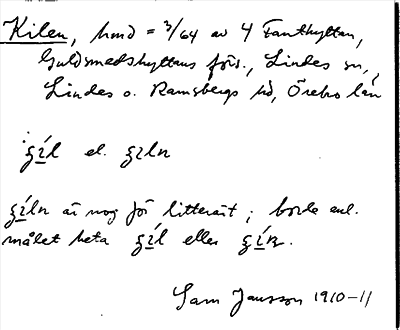 Kilen, hmd = 3/64 av 4 Fanthyttan,
Guldsmedshyttans förs., Lindes sn,
Lindes o. Ramsbergs hd, Örebro län
ʒíl el. ʒiln
ʒíln är nog för litterärt; borde enl.
målet heta ʒíl eller ʒíɴ.
Sam Jansson 1910-11